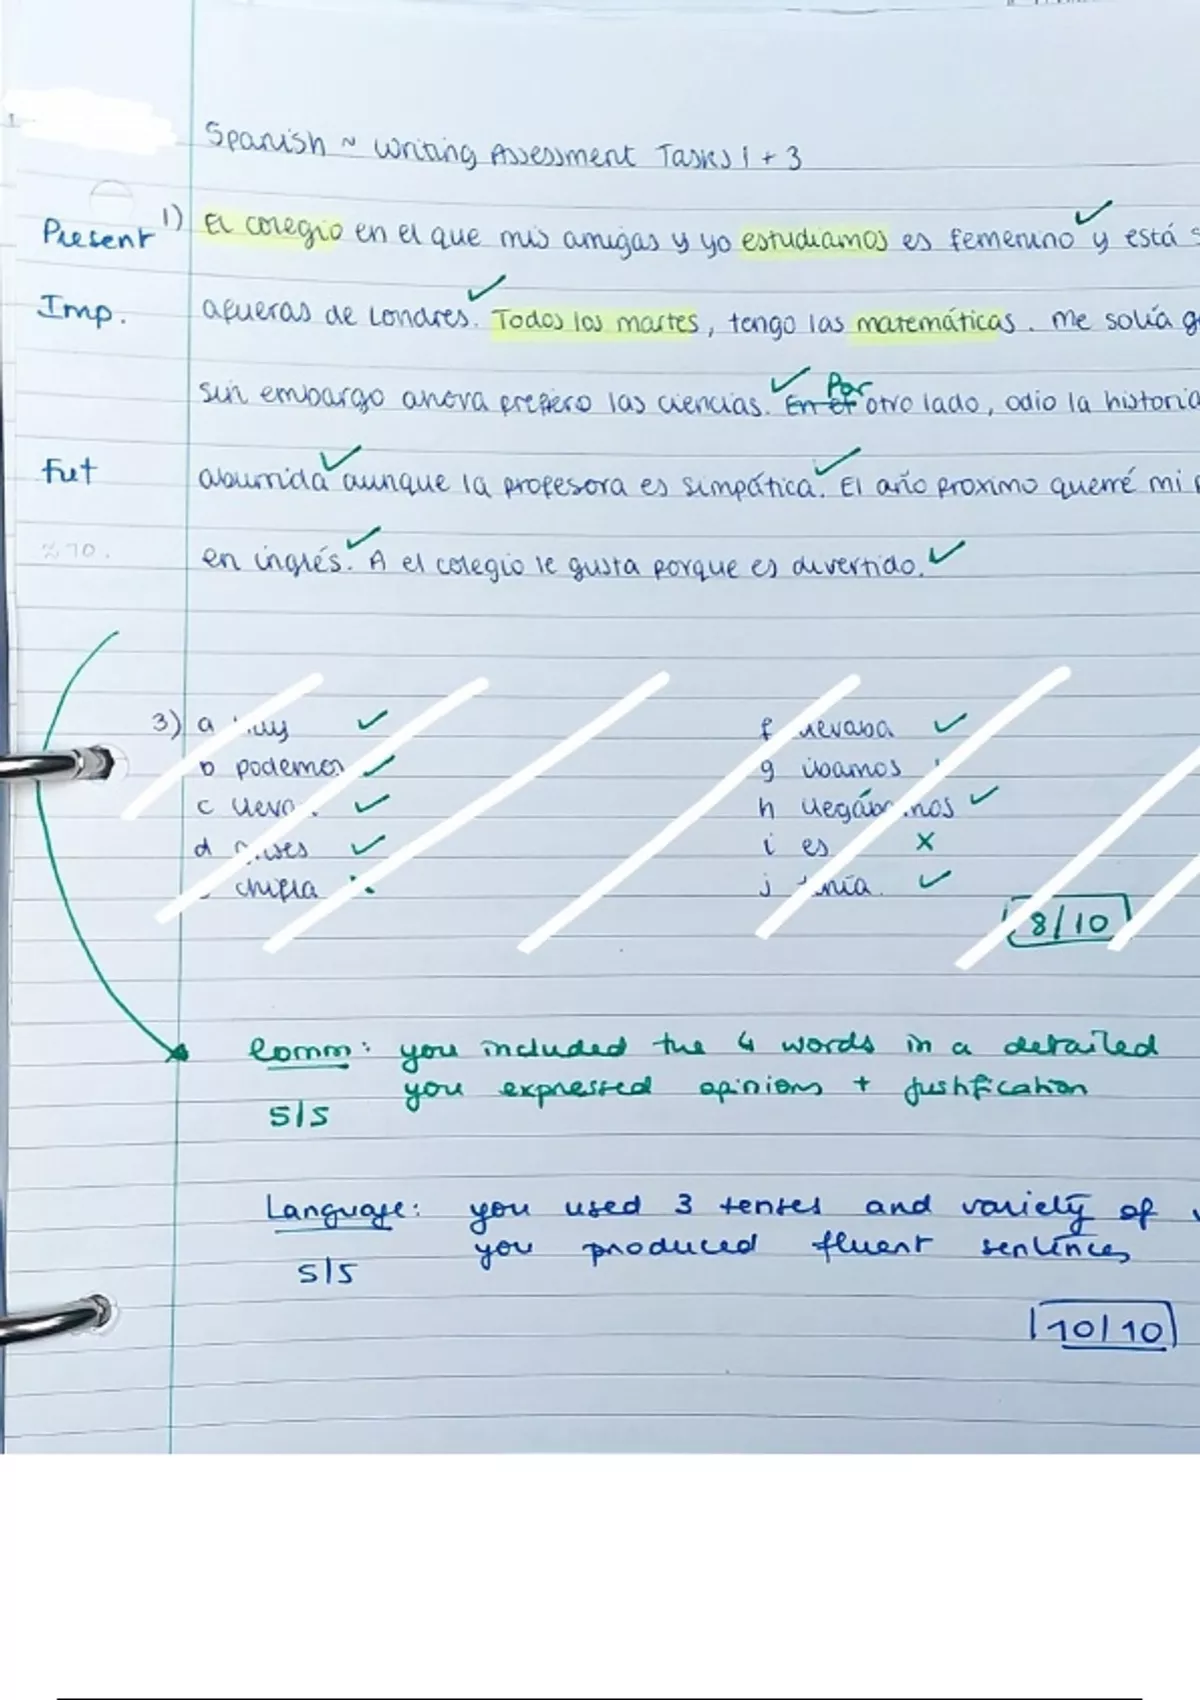 Spanish ~ Writing Assessment Tasks 1 + 3
Present 1) El colegio en el que mis amigas y yo estudiamos es femenino y está
Imp. afueras de Londres. Todos los martes, tengo las matemáticas. Me solía
Por
sin embargo ahora prefiero las ciencias. En el otro lado, odio la historia
Fut aburrida aunque la profesora es simpática. El año proximo querré mi
≈70. en inglés. A el colegio le gusta porque es divertido.
3) a muy f llevaba
b podemos g íbamos
c lleva h
d i es
chifla j tenía
8/10
Comm: you included the 4 words in a detailed
you expressed opinions + justification
5/5
Language: you used 3 tenses and variety of
you produced fluent sentences
5/5
10/10